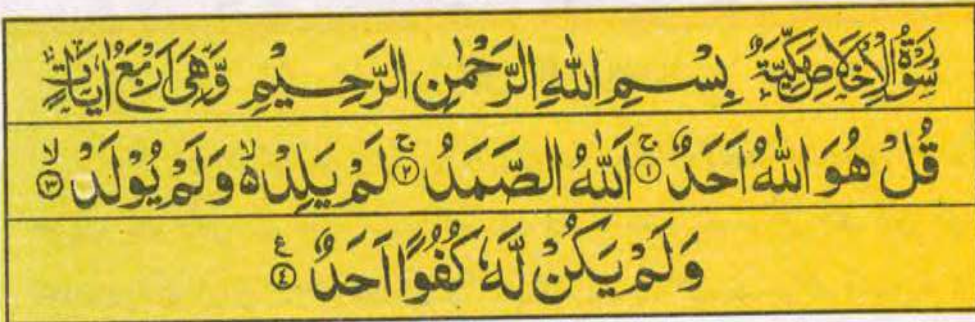 سُوْرَةُ الْاِخْلَاصِ مَكِّيَّةٌ بِسْمِ اللهِ الرَّحْمٰنِ الرَّحِيْمِ وَّهِىَ اَرْبَعُ اٰيَاتٍ
قُلْ هُوَ اللهُ اَحَدٌ ۚ﴿١﴾ اَللهُ الصَّمَدُ ۚ﴿٢﴾ لَمْ يَلِدْ ۙ۬ وَلَمْ يُوْلَدْ ۙ﴿٣﴾
وَلَمْ يَكُنْ لَّهٗ كُفُوًا اَحَدٌ ﴿٤﴾ ع